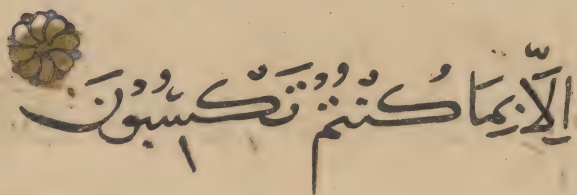 اِلَّا بِمَا كُنْتُمْ تَكْسِبُونَ